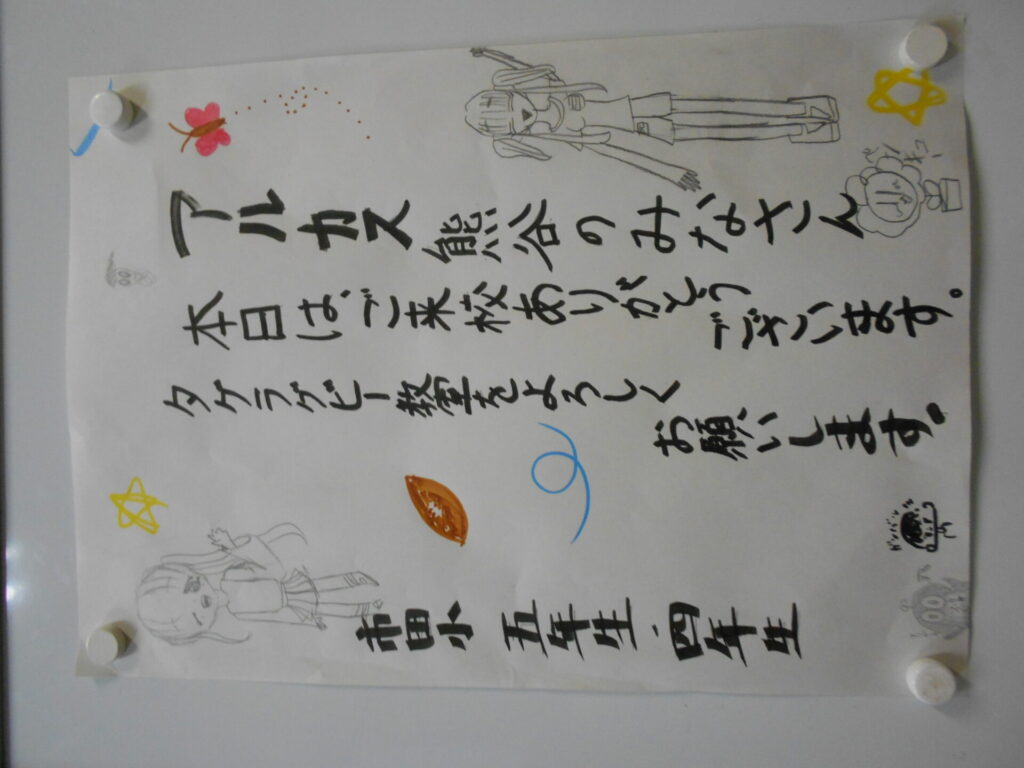 アルカス熊谷のみなさん
本日は、ご来校ありがとう
ございます。
タグラグビー教室をよろしく
お願いします。
市田小 五年生・四年生